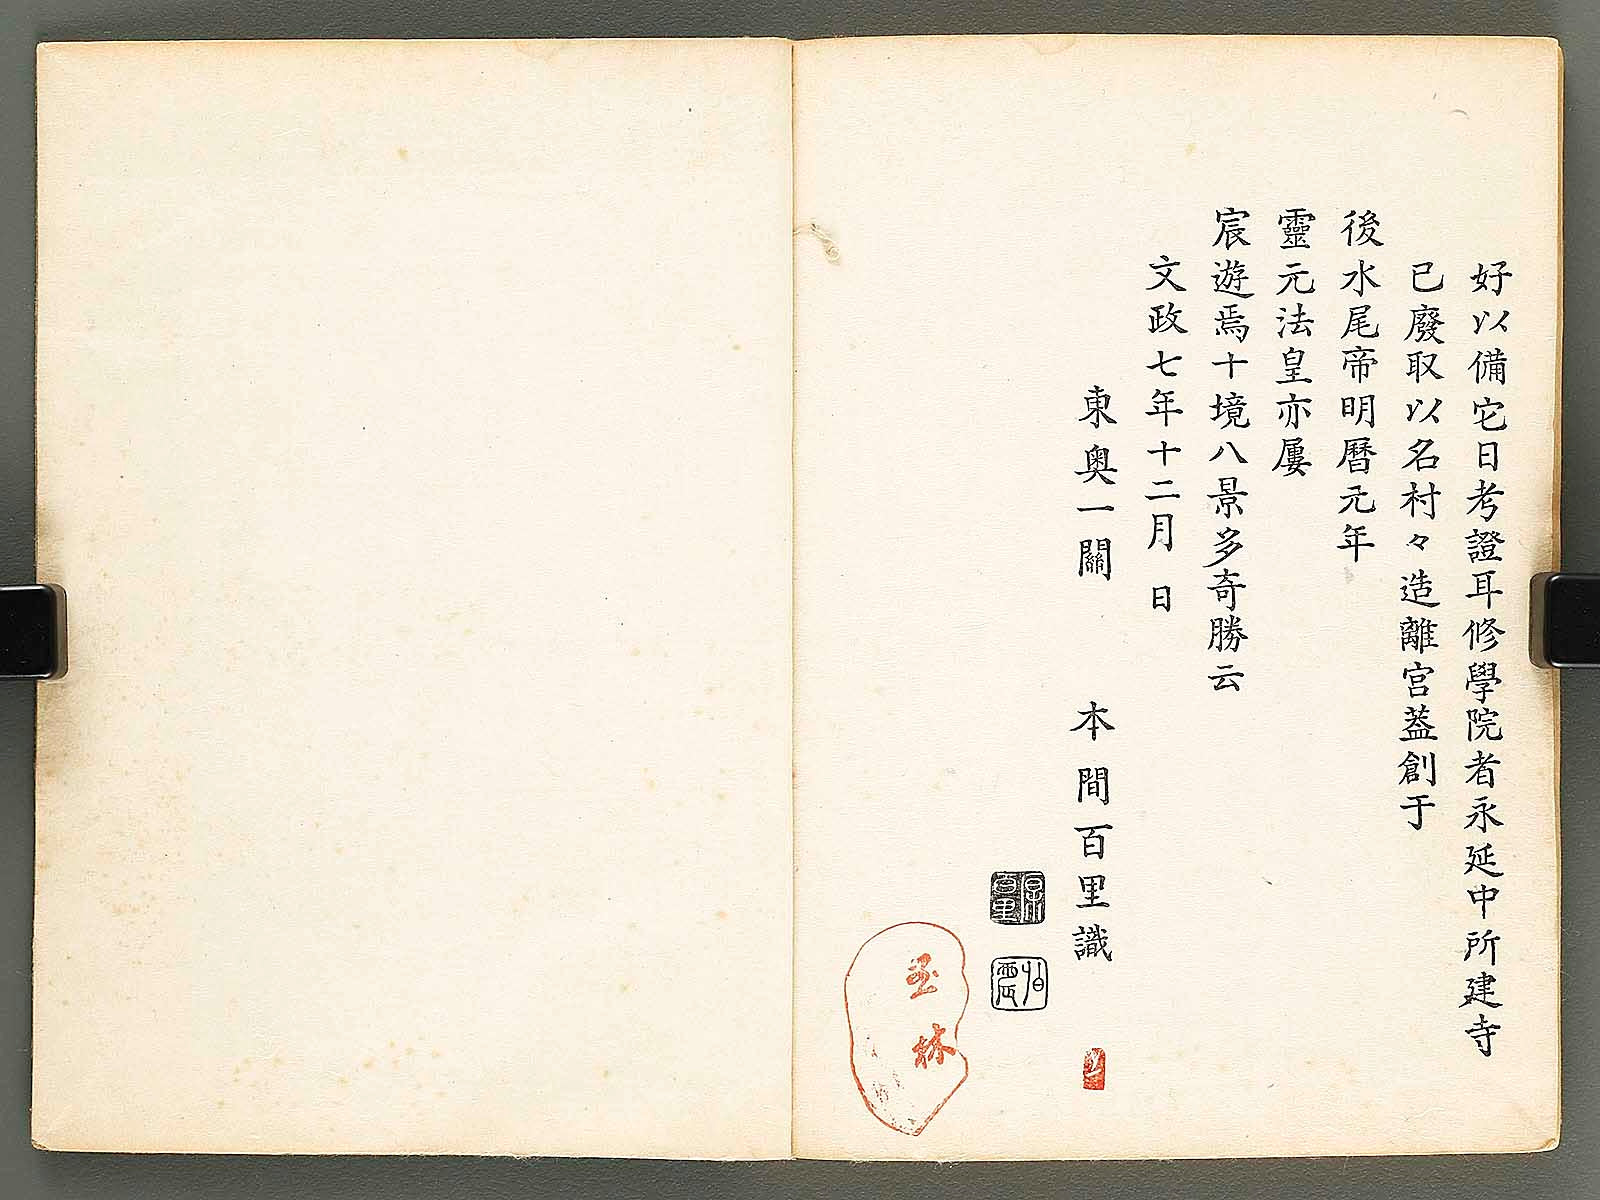 好以備宅日考證耳修學院者永延中所建寺
已廢取以名村々造離宮葢創于
後水尾帝明曆元年
靈元法皇亦屢
宸遊焉十境八景多奇勝云
文政七年十二月 日
東奥一關 本間百里識
百里